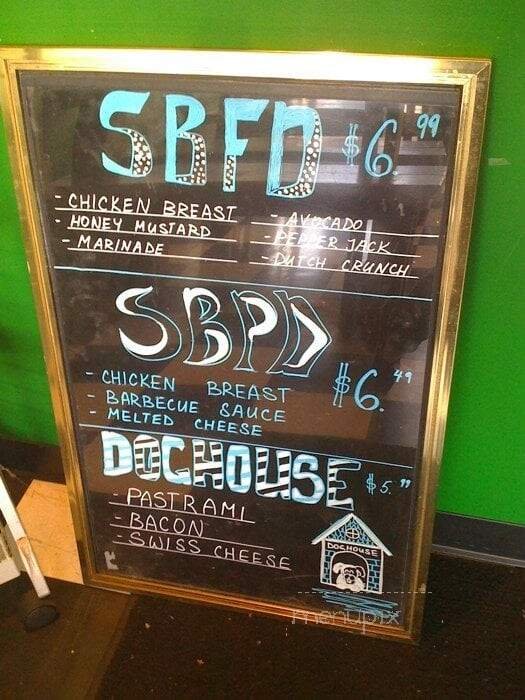 SBFD $6.99
- CHICKEN BREAST
- HONEY MUSTARD
- MARINADE
- AVOCADO
- PEPPER JACK
- DUTCH CRUNCH
SBPD
$6.49
- CHICKEN BREAST
- BARBECUE SAUCE
- MELTED CHEESE
DOGHOUSE $5.
- PASTRAMI
- BACON
- SWISS CHEESE
DOGHOUSE
menupix